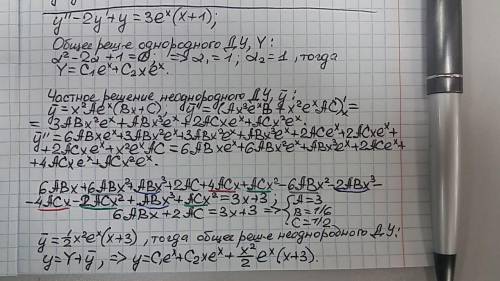 y''-2y'+y=3eˣ(x+1);
Общее реш-е однородного Д.У., Y:
α²-2α+1=0; => α₁=1; α₂=1, тогда
Y=C₁eˣ+C₂xeˣ.
Частное решение неоднородного Д.У., ȳ:
ȳ=x²Aeˣ(Bx+C), ȳ'=(Ax³eˣB+x²eˣAC)'ₓ=
=3ABx²eˣ+ABx³eˣ+2ACxeˣ+ACx²eˣ.
ȳ''=6ABxeˣ+3ABx²eˣ+3ABx²eˣ+ABx³eˣ+2ACeˣ+2ACxeˣ+
+2ACxeˣ+x²eˣAC=6ABxeˣ+6ABx²eˣ+ABx³eˣ+2ACeˣ+
+4ACxeˣ+ACx²eˣ.
6ABx+6ABx²+ABx³+2AC+4ACx+ACx²-6ABx²-2ABx³-
-4ACx-2ACx²+ABx³+ACx²=3x+3; {A=3
6ABx+2AC=3x+3 => {B=1/6
C=1/2
ȳ=½x²eˣ(x+3), тогда общее реш-е неоднородного Д.У.:
y=Y+ȳ, => y=C₁eˣ+C₂xeˣ+x²/2eˣ(x+3).